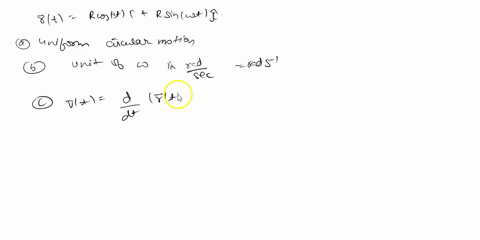 r̄(t) = R cos(ωt) î + R sin(ωt) ĵ
ⓐ uniform circular motion
ⓑ unit of ω is rad/sec = rad s⁻¹
ⓒ v̄(t) = d/dt (r̄(t